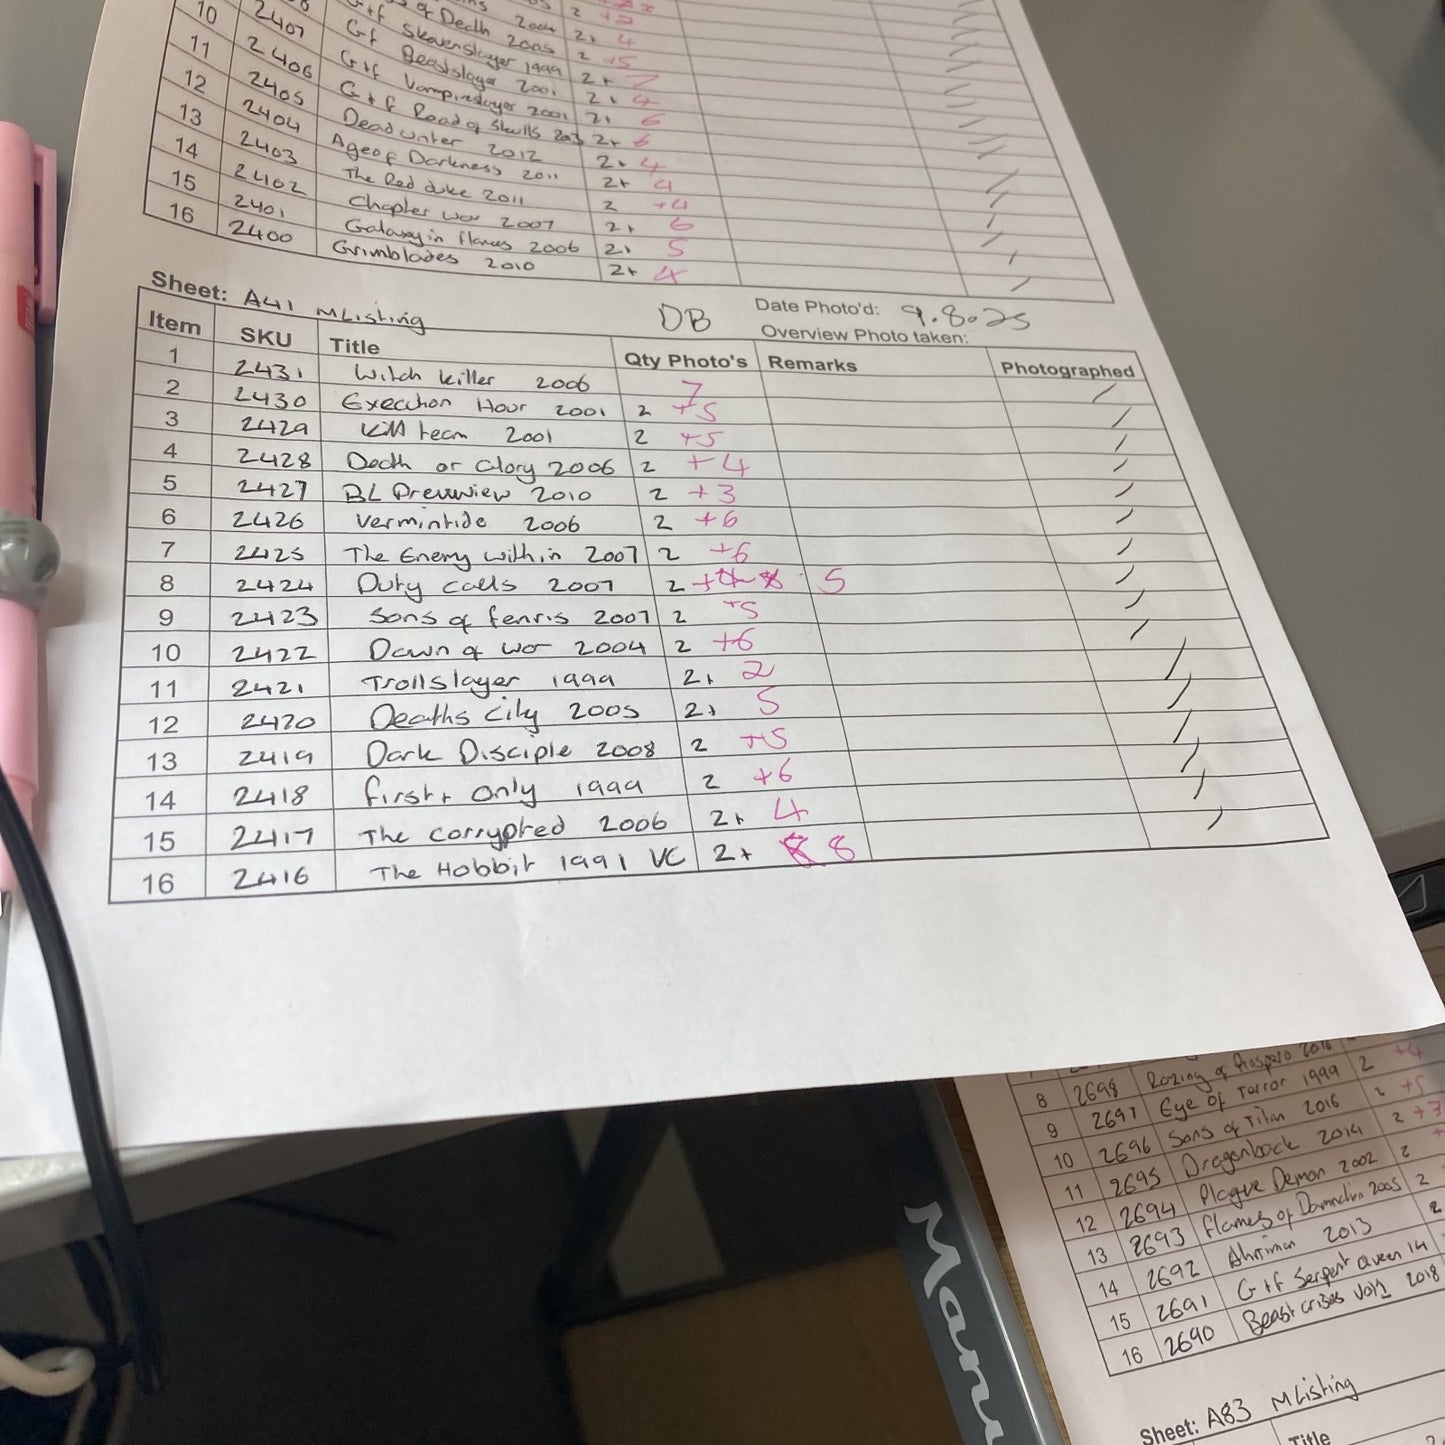 2
of Death 2004 2+ 4
10 2407 G+f Skavenslayer 1999 2 +5
11 2406 Gf Beastslayer 2001 2+ 7
12 2405 G+f Vampireslayer 2001 2+ 4
13 2404 G+f Road of Skulls 2013 2+ 6
Deadwinter 2012 2+ 6
14 2403 Age of Darkness 2011 2+ 4
15 2402 The Red duke 2011 2+ 4
16 2401 Chapter war 2007 2 +4
2400 Galaxy in flames 2006 2+ 6
Grimblades 2010 2+ 5
2+ 4
Sheet: A41 MListing DB Date Photo'd: 9.8.25
Overview Photo taken:
Item SKU Title Qty Photo's Remarks Photographed
1 2431 Witch killer 2006 7
2 2430 Execution Hour 2001 2 +5
3 2429 Kill team 2001 2 +5
4 2428 Death or Glory 2006 2 +4
5 2427 BL Prevwiew 2010 2 +3
6 2426 Vermintide 2006 2 +6
7 2425 The Enemy within 2007 2 +6
8 2424 Duty calls 2007 2 + 5
9 2423 Sons of fenris 2007 2 +5
10 2422 Dawn of war 2004 2 +6
11 2421 Trollslayer 1999 2+ 2
12 2420 Deaths City 2005 2+ 5
13 2419 Dark Disciple 2008 2 +5
14 2418 first + Only 1999 2 +6
15 2417 The corrypted 2006 2+ 4
16 2416 The Hobbit 1991 VC 2+ 8
2 +4
8 2698 Razing of Prospero 2016 2 +5
9 2697 Eye of Terror 1999 2 +3
10 2696 Sons of Titan 2016 2 +
11 2695 Dragonback 2014 2
12 2694 Plague Demon 2002 2
13 2693 flames of Damnation 2005 2
14 2692 Ahriman 2013
15 2691 G+f Serpent Queen 14
16 2690 Beast crises Vol1 2018
Sheet: A83 MListing
Title